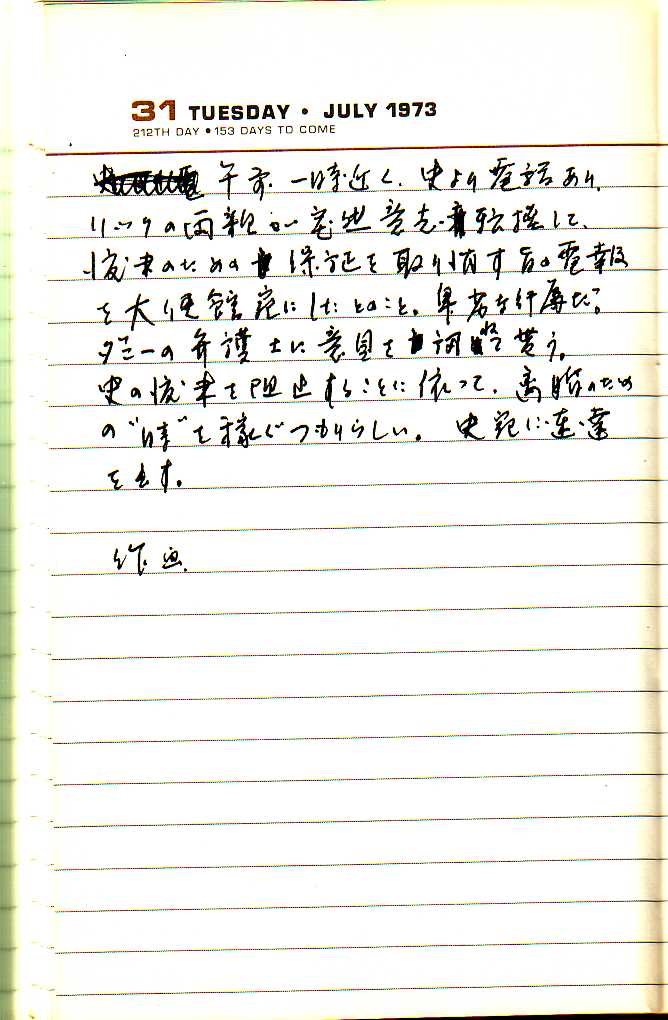 31 TUESDAY • JULY 1973
212TH DAY • 153 DAYS TO COME
午前一時近く、史より電話あり、
リックの両親が突然意志転換して、
渡米のための保証を取り消す旨の電報
を大使館宛にしたとのこと。卑劣な行為だ。
タミーの弁護士に意見を訊て貰う。
史の渡米を阻止することに依って、離婚のため
の"時"を稼ぐつもりらしい。史宛に速達
を出す。
作画.